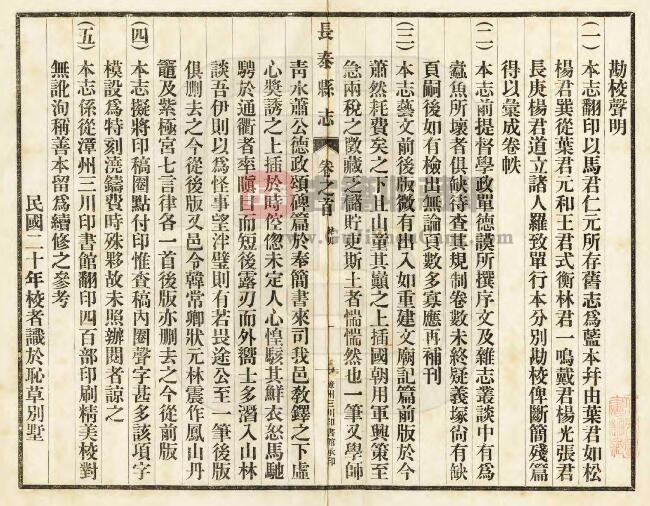 勘校聲明
(一)本志翻印以馬君仁元所存舊志爲藍本幷由葉君如松
楊君巽從葉君元和王君式衡林君一鳴戴君楊光張君
長庚楊君道立諸人羅致單行本分別勘校俾斷簡殘篇
得以彙成卷帙
(二)本志前提督學政單德謨所撰序文及雜志叢談中有爲
蠹魚所壞者俱缺待查其規制卷數未終疑義塚尙有缺
頁嗣後如有檢出無論頁數多寡應再補刊
(三)本志藝文前後版微有出入如重建文廟記篇前版於今
蕭然耗費矣之下山童其巔之上插國朝用軍興策至
急兩稅之徵藏之儲貯吏斯土者惴惴然也一筆又學師
長泰縣志
卷之首
漳州三川印書館承印
靑水蕭公德政頌碑篇於奉簡書來司我邑教鐸之下虛
心獎誘之上插於時倥偬未定人心惶駭其鮮衣怒馬馳
騁於通衢者率瞋目而短後露刃而外嚮士多潛入山林
談吾伊則以爲怪事望泮璧則有若畏途公至一筆後版
俱刪去之今從後版又邑令韓常卿狀元林震作鳳山丹
竈及紫極宮七言律各一首後版亦刪去之今從前版
(四)本志擬將印稿圈點付印惟查稿內圈聲字甚多該項字
模設爲特刻澆鑄費時殊夥故未照辦閱者諒之
(五)本志係從漳州三川印書館翻印四百部印刷精美校對
無訛洵稱善本留爲續修之參考
民國二十年校者識於恥草別墅